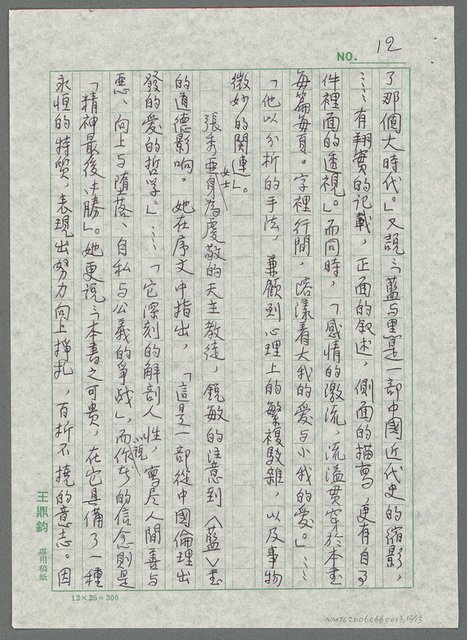 NO. 12
了那個大時代。」又說：「藍與黑是一部中國近代史的縮影，
……有翔實的記載，正面的叙述，側面的描寫，更有自事
件裡面的透視。」而同時，「感情的激流，流溢貫穿於本書
每篇每頁。字裡行間，洛漾着大我的愛與小我的愛。」……
「他以分析的手法，兼顧到心理上的繁複駁雜，以及事物
微妙的關連。」
張秀亞女士身為虔敬的天主教徒，銳敏的注意到〈藍〉書
的道德影响。她在序文中指出，「這是一部從中國倫理出
發的愛的哲学。」……「它深刻的解剖人性，寫尽人間善与
惡、向上与堕落、自私与公義的爭战」，而作者的信念則是
「精神最後才勝」。她更說：「本書之可貴，在它具備了一種
永恒的特質，表現出努力向上掙扎，百折不撓的意志。因
王鼎鈞 專用稿紙
12×25=300
NMTL20060660013,15/13